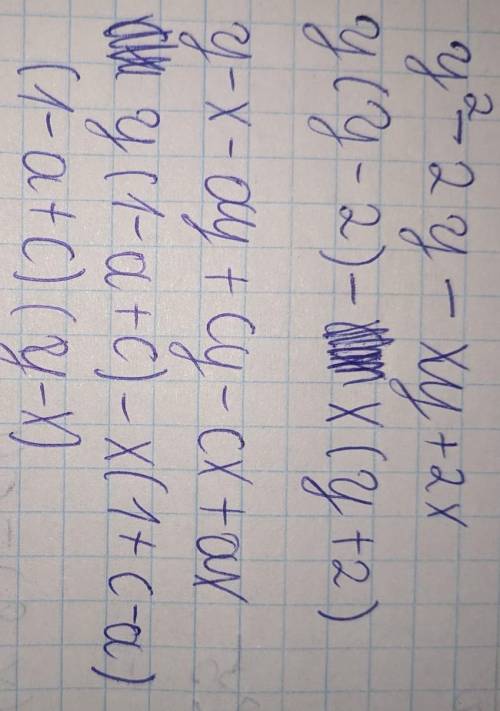 y² - 2y - xy + 2x
y(y - 2) - x(y + 2)
y - x - ay + cy - cx + ax
y(1 - a + c) - x(1 + c - a)
(1 - a + c)(y - x)